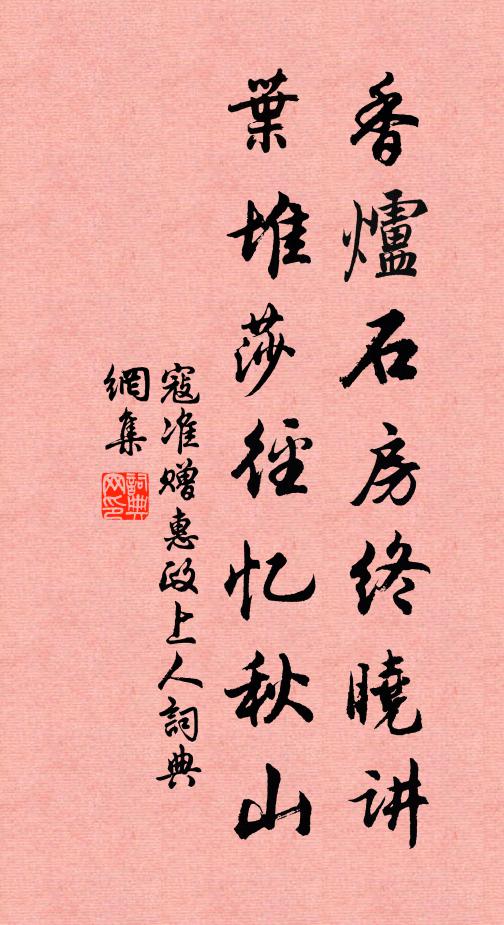 香爐石房终曉讲
葉堆莎徑忆秋山
寇准赠惠政上人詞典
網集
詞典
网印